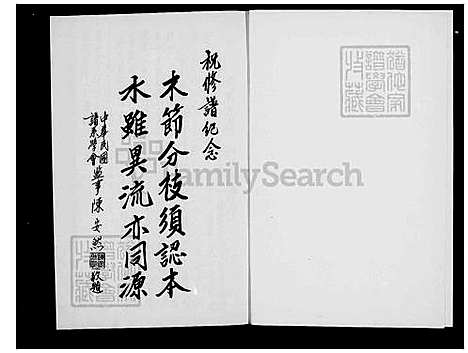 祝修譜紀念
木節分枝須認本
水雖異流亦同源
中華民國
譜系學會
監事陳安然敬題
FamilySearch